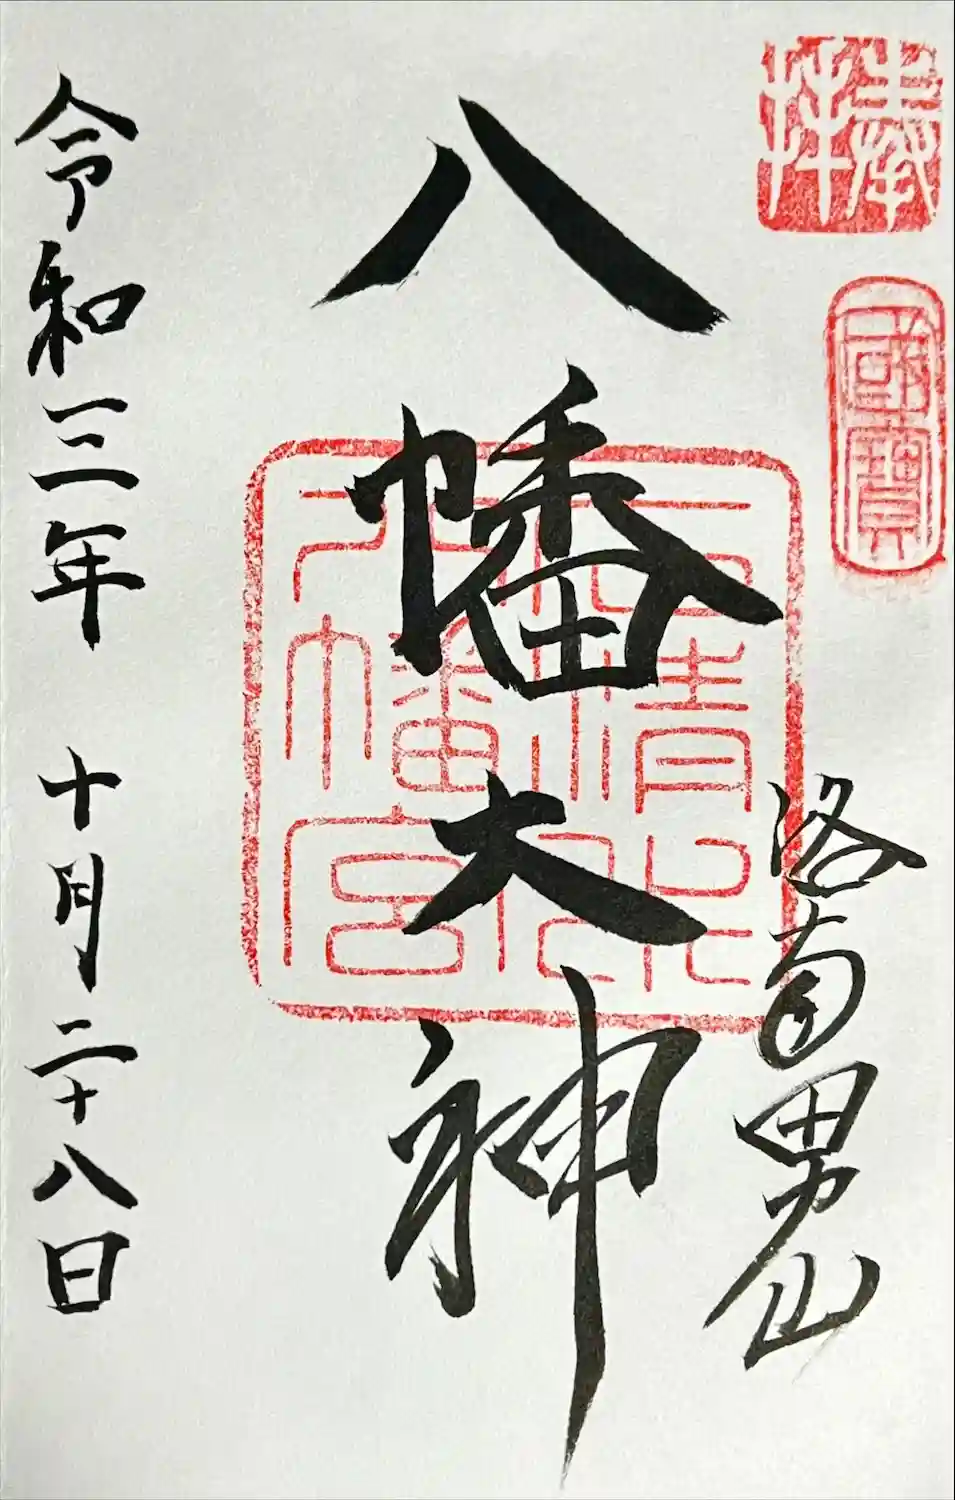 奉拝
國寶
洛南男山
八幡大神
石清水八幡宮
令和三年 十月二十八日